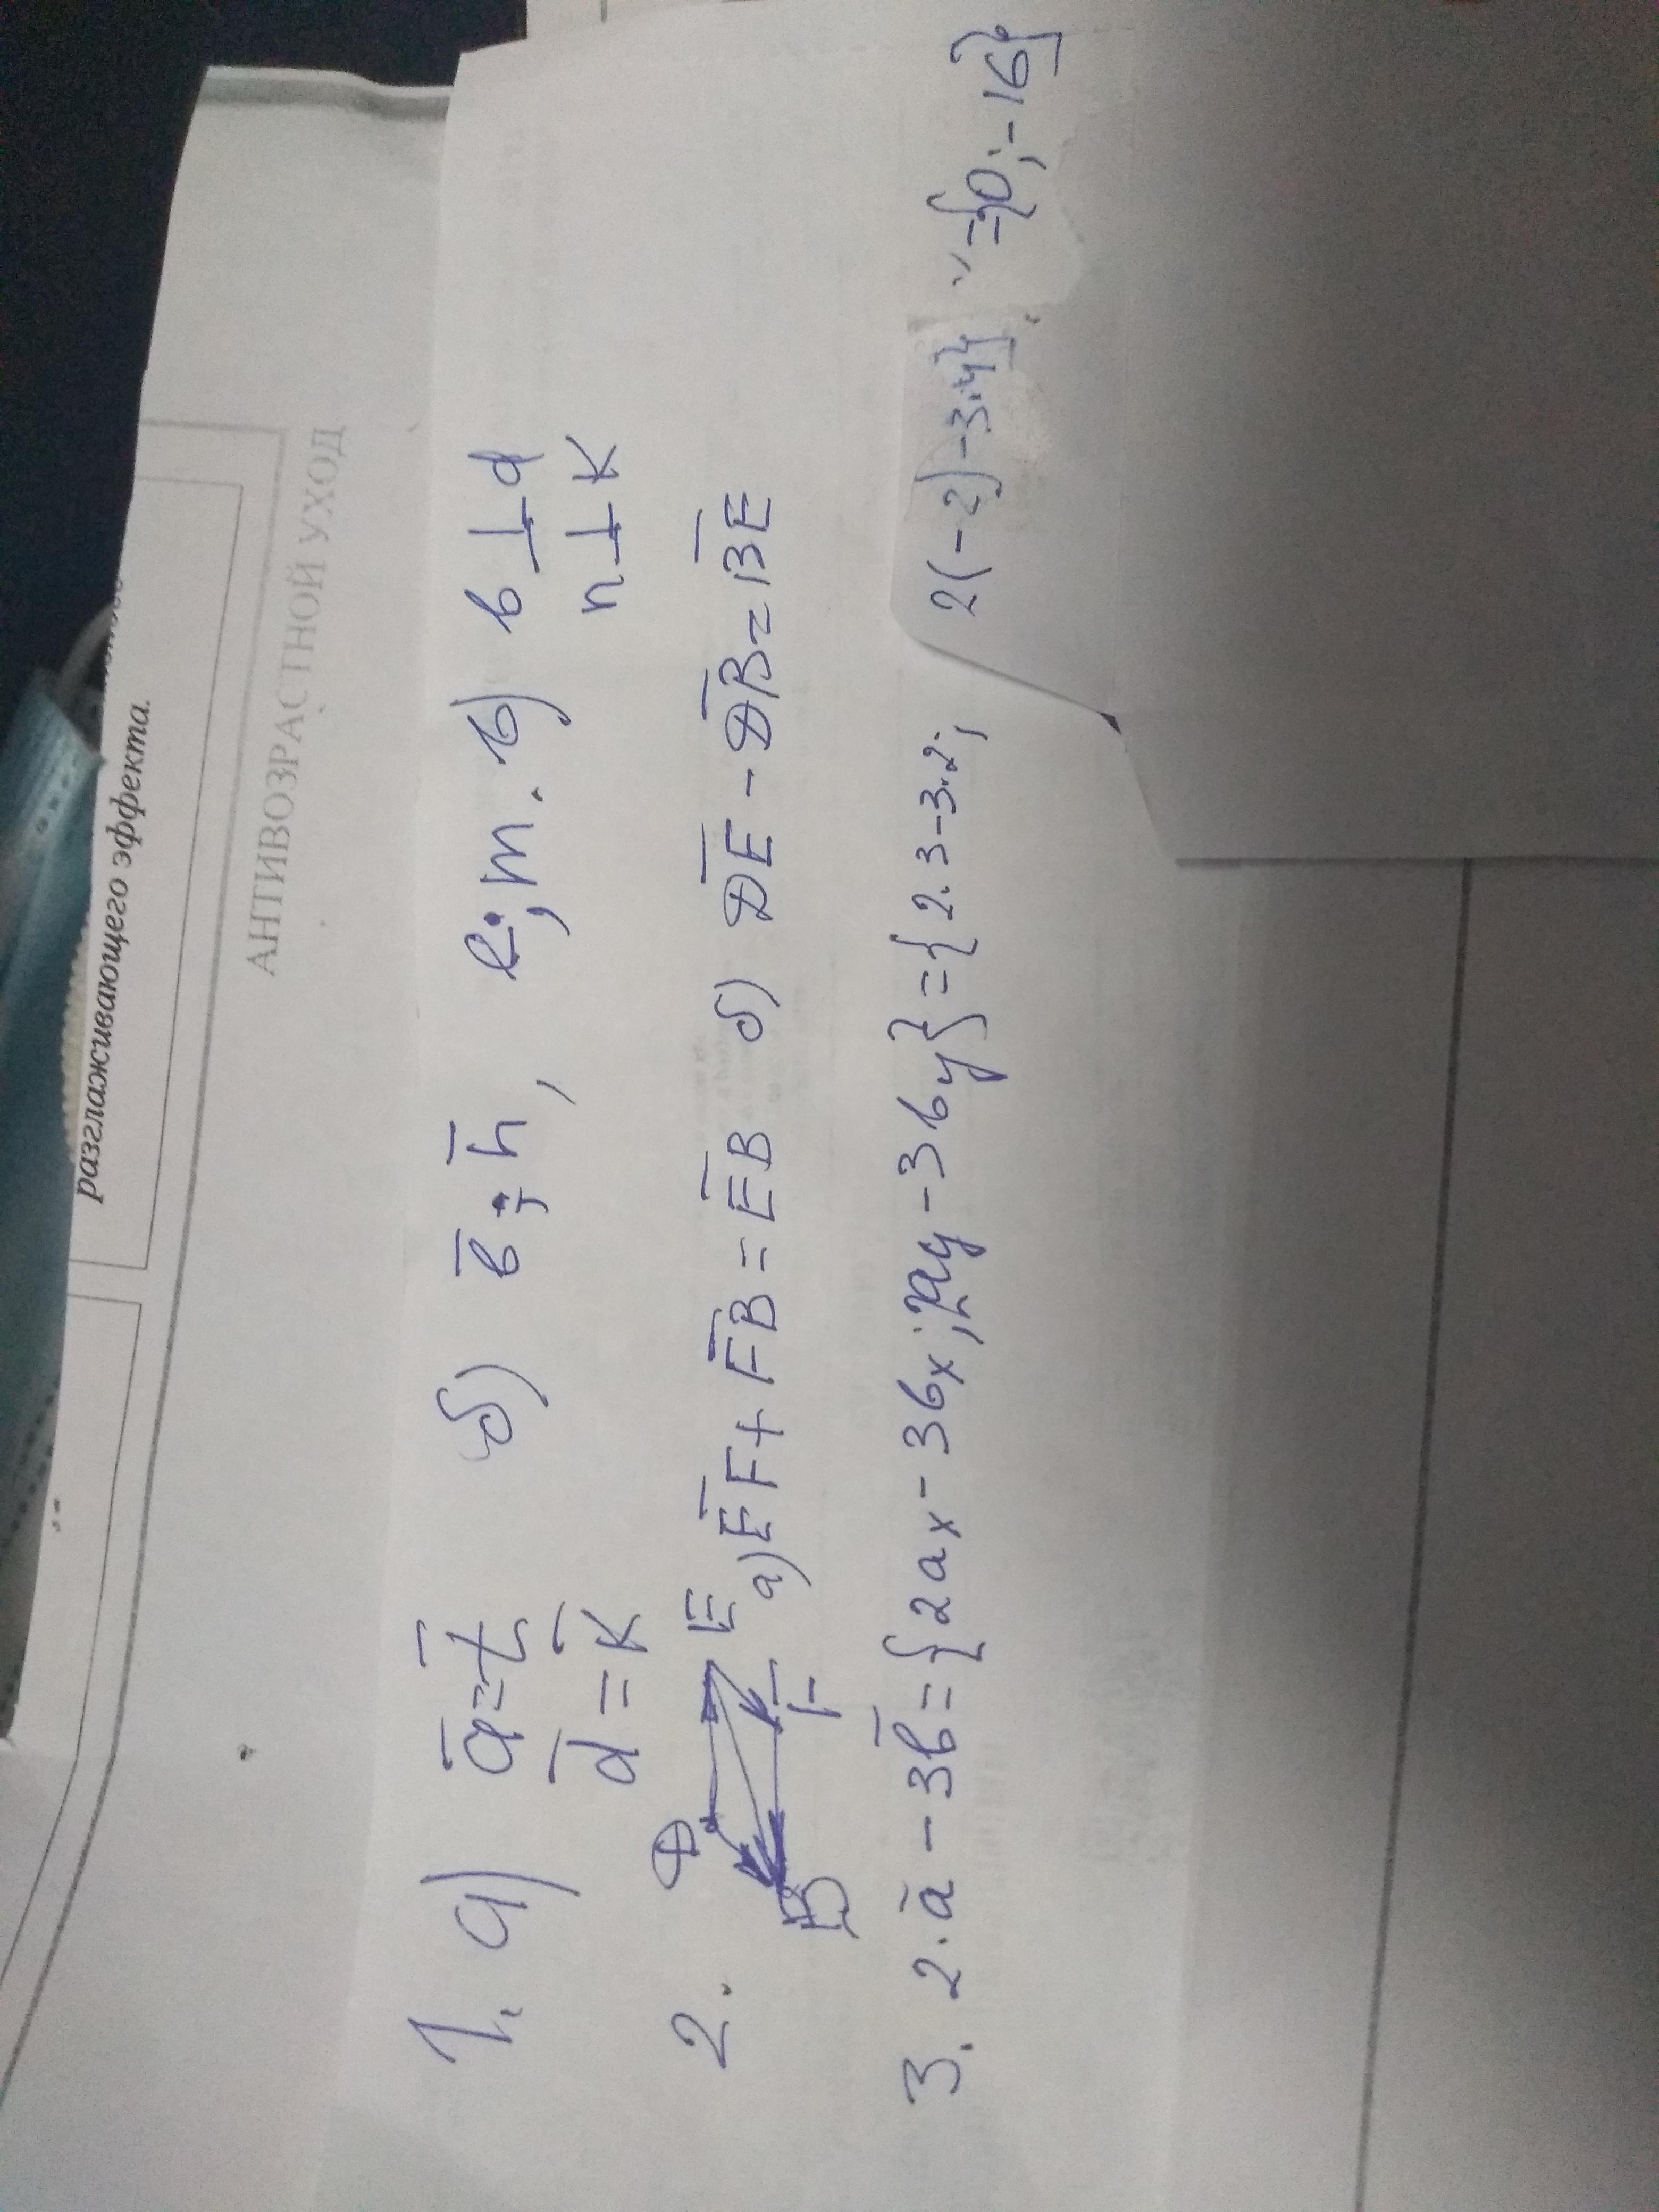 разглаживающего эффекта.
АНТИВОЗРАСТНОЙ УХОД
1. а) a̅ = t̅ б) b̅; n̅, e; m. в) b ⊥ d
d̅ = K̅ n ⊥ K
2. D E а) E̅F̅ + F̅B̅ = E̅B̅ б) D̅E̅ - D̅B̅ = B̅E̅
B F
3. 2·a̅ - 3b̅ = {2ax - 3bx; 2ay - 3by} = {2·3-3·2; 2(-2)-3·4} = {0; -16}